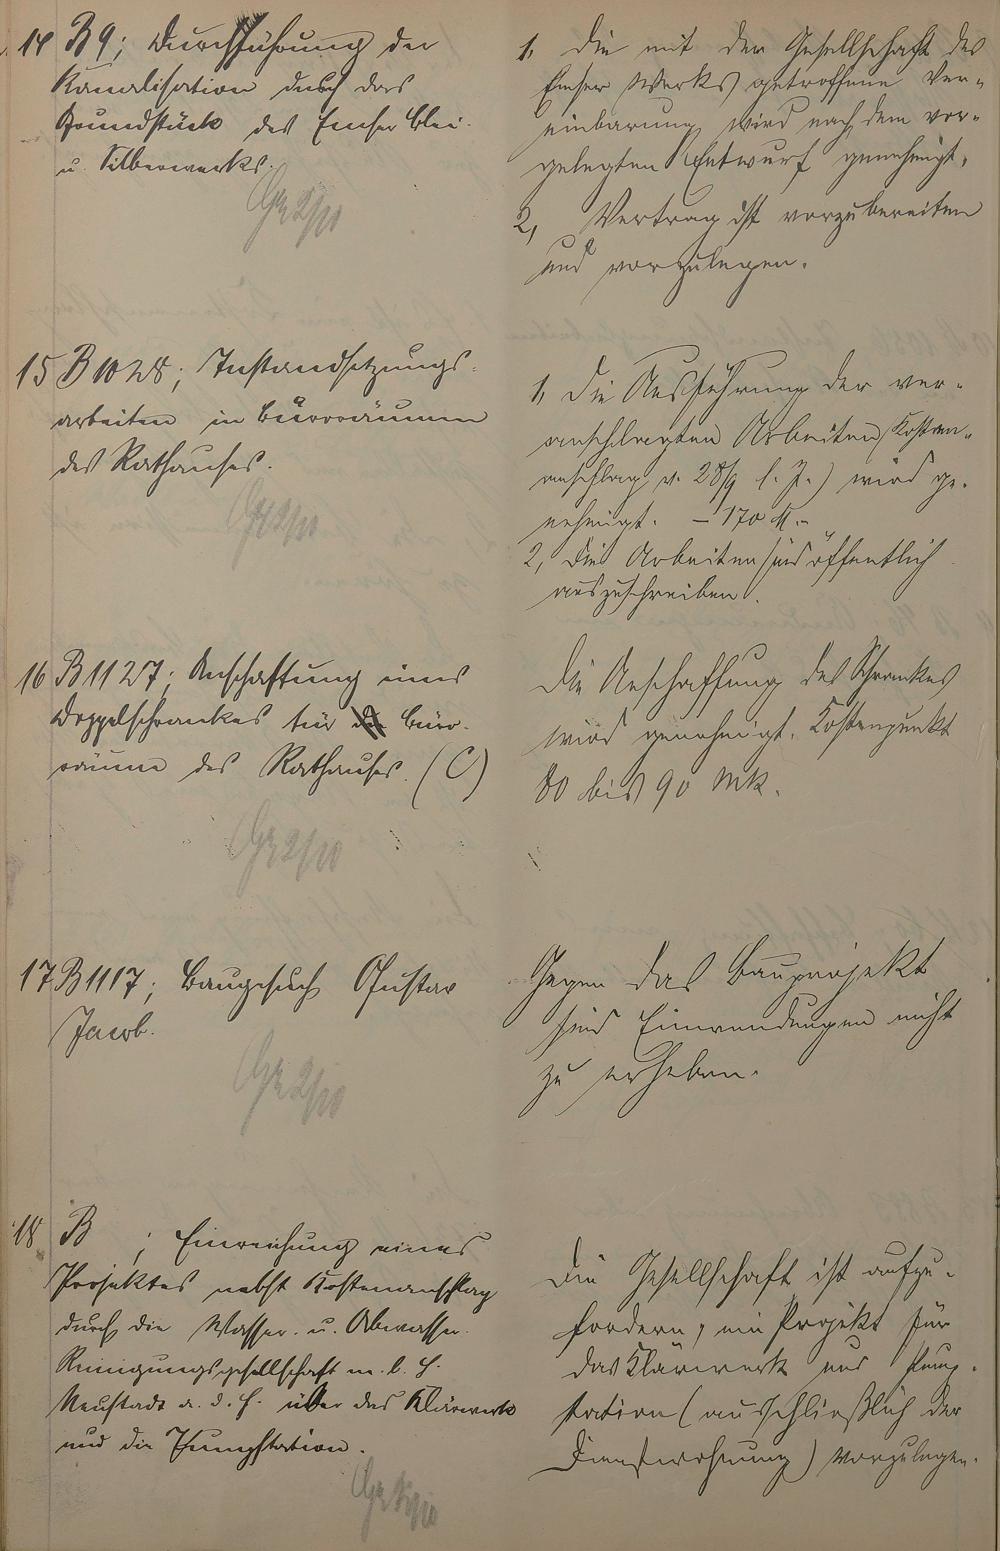 14 B 9; Durchführung der
Kanalisation durch das
Grundstück des Emser Blei-
u. Silberwerks.
1, Die mit der Gesellschaft des
Emser Werks getroffene Ver-
einbarung wird nach dem vor-
gelegten Entwurf genehmigt.
2, Vertrag ist vorzubereiten
und vorzulegen.
15 B 1028; Instandsetzungs-
arbeiten in Büroräumen
des Rathauses.
1, Die Ausführung der ver-
anschlagten Arbeiten (Kosten-
anschlag v. 28/9 l. J.) wird ge-
nehmigt. – 170 M. –
2, Die Arbeiten sind öffentlich
auszuschreiben.
16 B 1127; Anschaffung eines
Doppelschrankes für die Büro-
räume des Rathauses. (C)
Die Anschaffung des Schrankes
wird genehmigt. Kostenpunkt
80 bis 90 Mk.
17 B 1117; Baugesuch Gustav
Jacob.
Gegen das Bauprojekt
sind Einwendungen nicht
zu erheben.
18 B ; Einreichung eines
Projektes nebst Kostenanschlag
durch die Wasser- u. Abwasser-
Reinigungsgesellschaft m. b. H.
Neustadt a. d. H. über das Klärwerk
und die Pumpstation.
Die Gesellschaft ist aufzu-
fordern, ein Projekt für
das Klärwerk und Pump-
station (ausschließlich der
Dienstwohnung) vorzulegen.